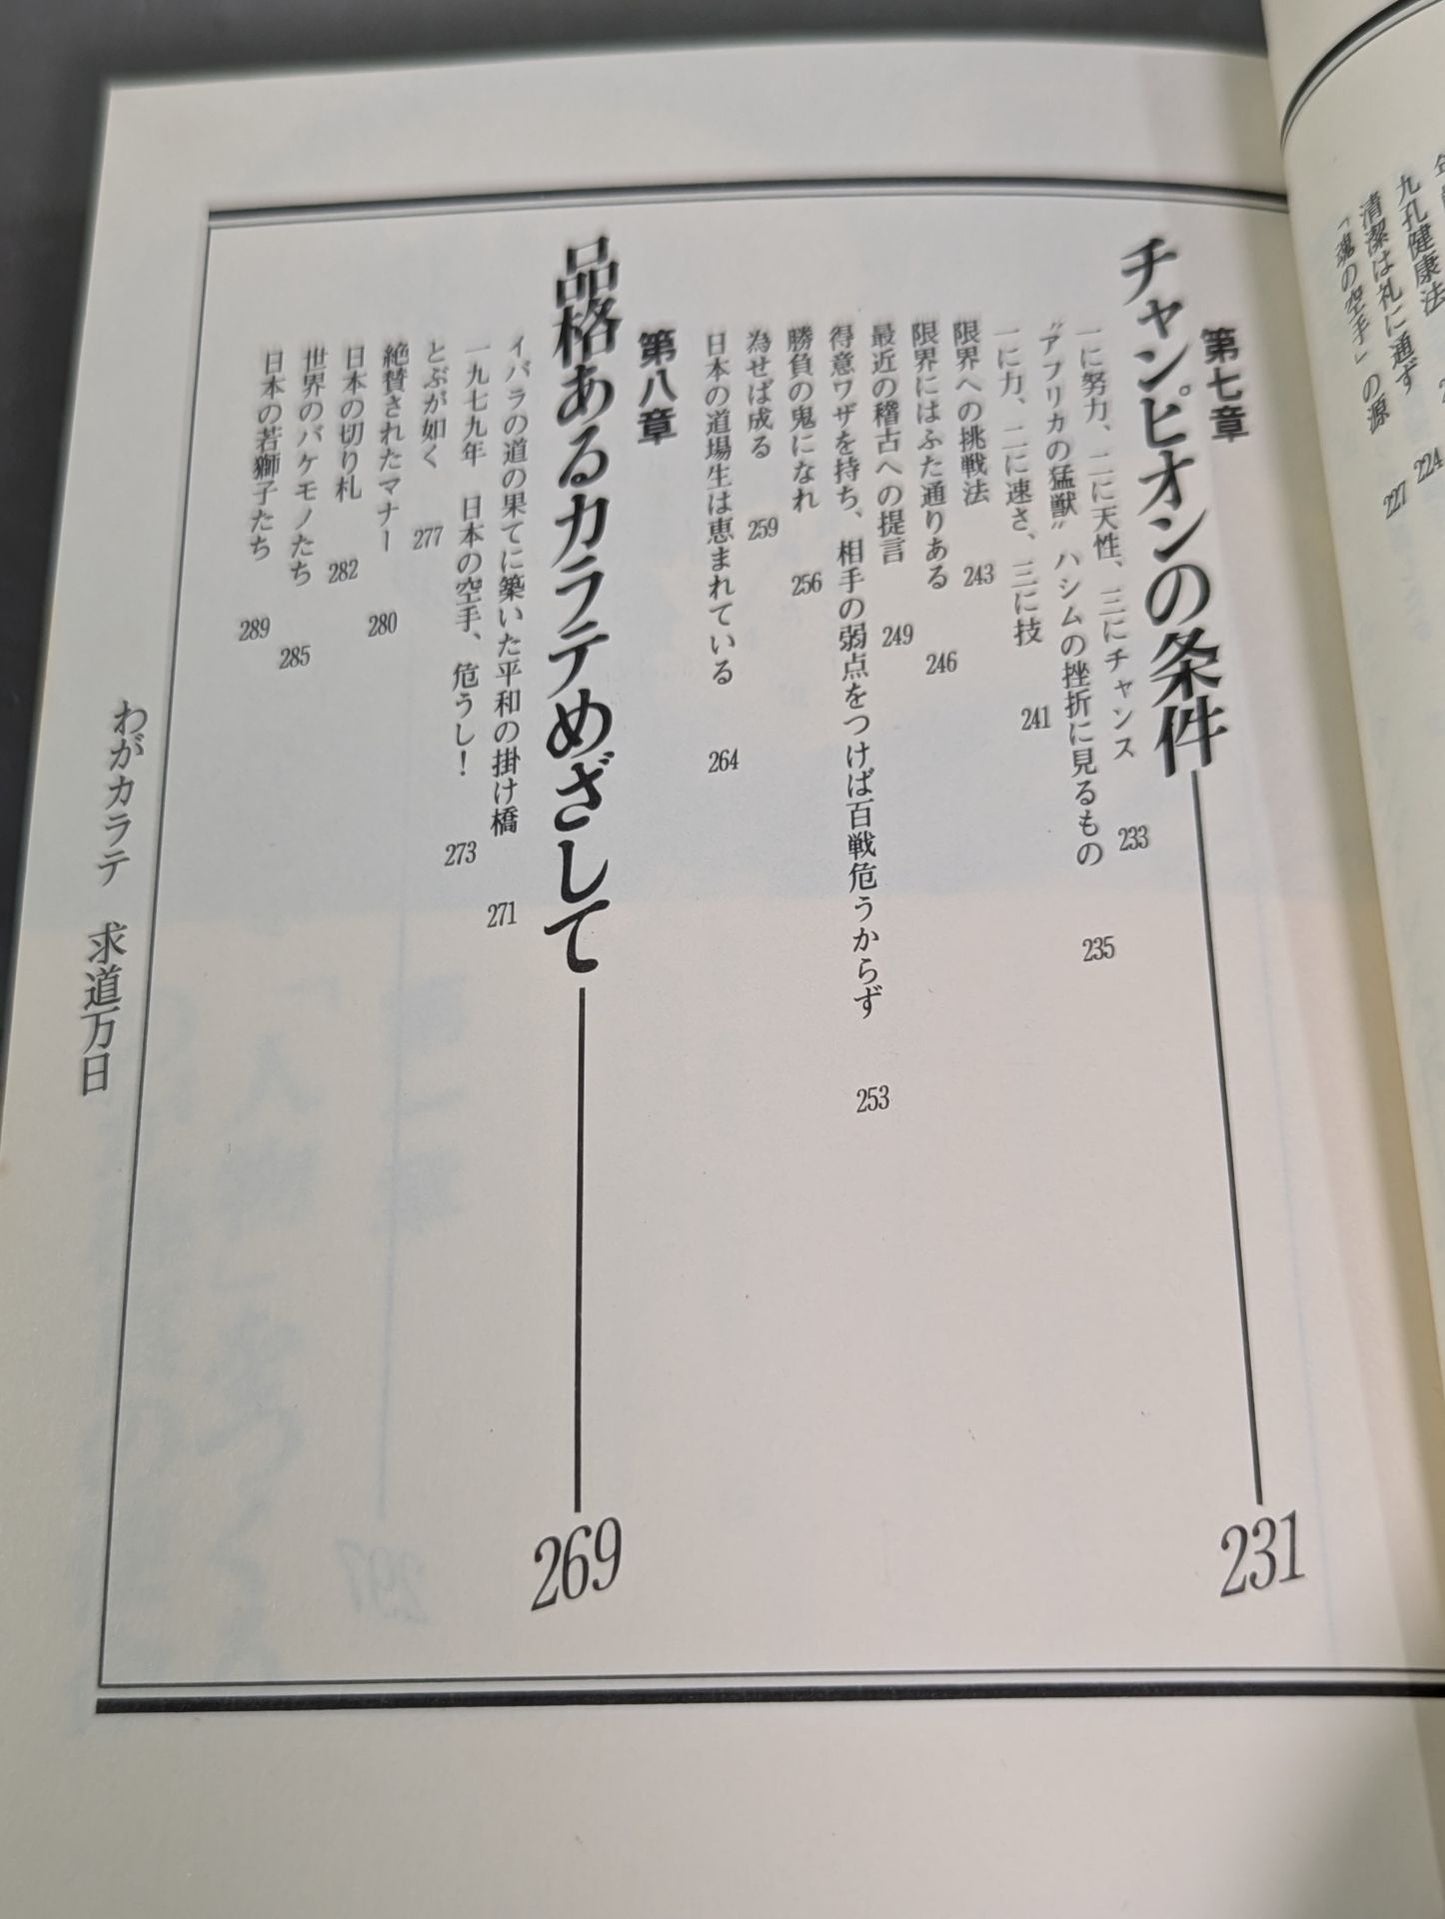 九孔健康法
224
清潔は礼に通ず
227
「魂の空手」の源
第七章
チャンピオンの条件 231
一に努力、二に天性、三にチャンス 233
〝アフリカの猛獣〟ハシムの挫折に見るもの 235
一に力、二に速さ、三に技 241
限界への挑戦法 243
限界にはふた通りある 246
最近の稽古への提言 249
得意ワザを持ち、相手の弱点をつけば百戦危うからず 253
勝負の鬼になれ 256
為せば成る 259
日本の道場生は恵まれている 264
第八章
品格あるカラテめざして 269
イバラの道の果てに築いた平和の掛け橋 271
一九七九年 日本の空手、危うし! 273
とぶが如く 277
絶賛されたマナー 280
日本の切り札 282
世界のバケモノたち 285
日本の若獅子たち 289
わがカラテ 求道万日